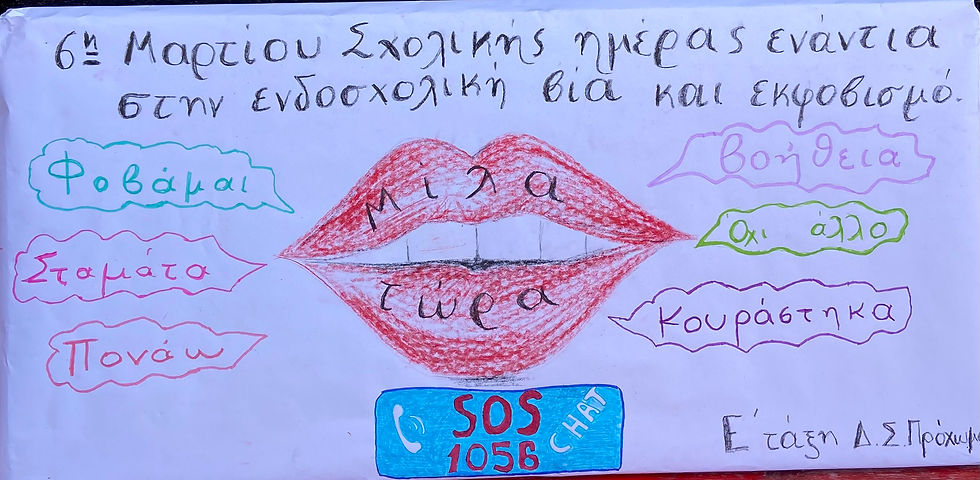 6η Μαρτίου Σχολικής ημέρας ενάντια
στην ενδοσχολική βία και εκφοβισμό.
Φοβάμαι
Σταμάτα
Πονάω
Μίλα
τώρα
Βοήθεια
Όχι άλλο
Κουράστηκα
SOS
1056
CHAT
Ε' τάξη Δ.Σ